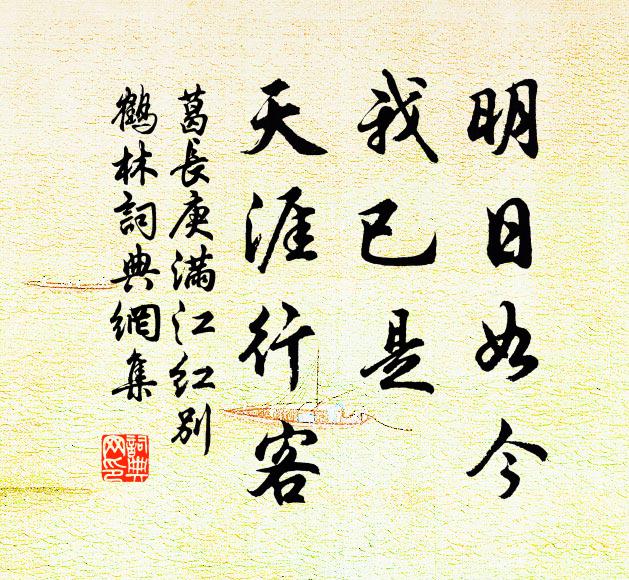 明日如今
我已是
天涯行客
葛長庚滿江紅別
鶴林詞典網集
詞典网印